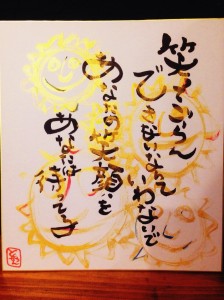 笑てごらん
できないなんて
いわないで
あなたの笑顔を
あなたは
待ってる